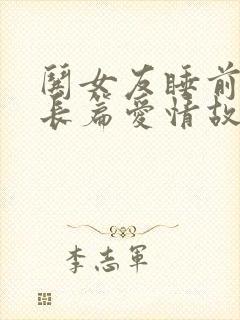 閧女友睡前
長篇愛情故
李志軍